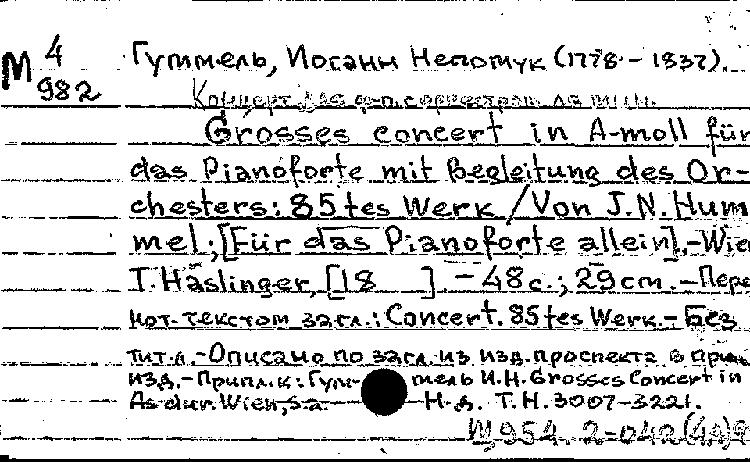 М 4 982
Гуммель, Иоганн Непомук (1778 - 1837).
Концерт для ф-п. с оркестром ля мин.
Grosses concert in A-moll für
das Pianoforte mit Begleitung des Or-
chesters: 85tes Werk / Von J.N. Hum-
mel; [Für das Pianoforte allein]. - Wien
T. Haslinger, [18 ] - 48 с.; 29 cm. - Пере
нот. текстом загл.: Concert. 85tes Werk. - Без
тит. л. - Описано по загл. из изд. проспекта в
изд. - Припл. к: Гуммель И.Н. Grosses Concert in
As dur. Wien, s.a. Н.д. T.H. 3007-3221.
954. 2-042